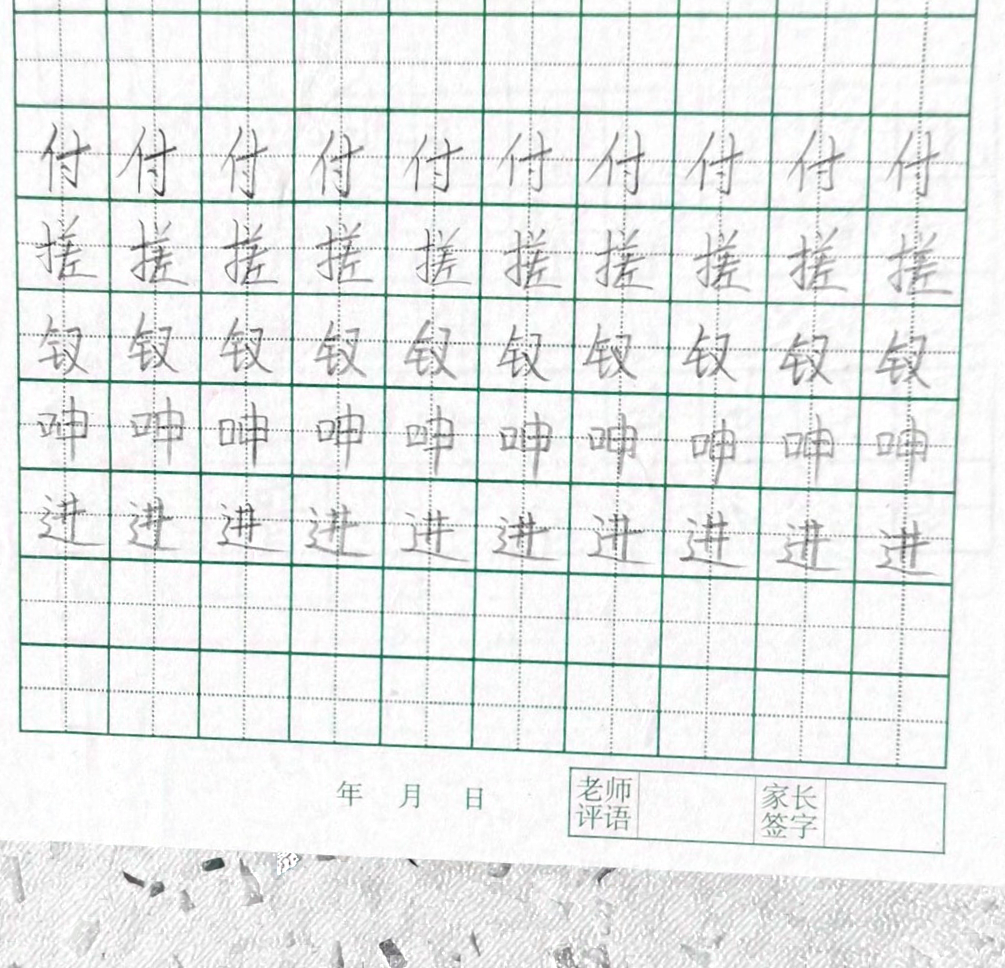 付付付付付付付付付付
搓搓搓搓搓搓搓搓搓搓
钗钗钗钗钗钗钗钗钗钗
呻呻呻呻呻呻呻呻呻呻
进进进进进进进进进进
年 月 日
老师评语
家长签字